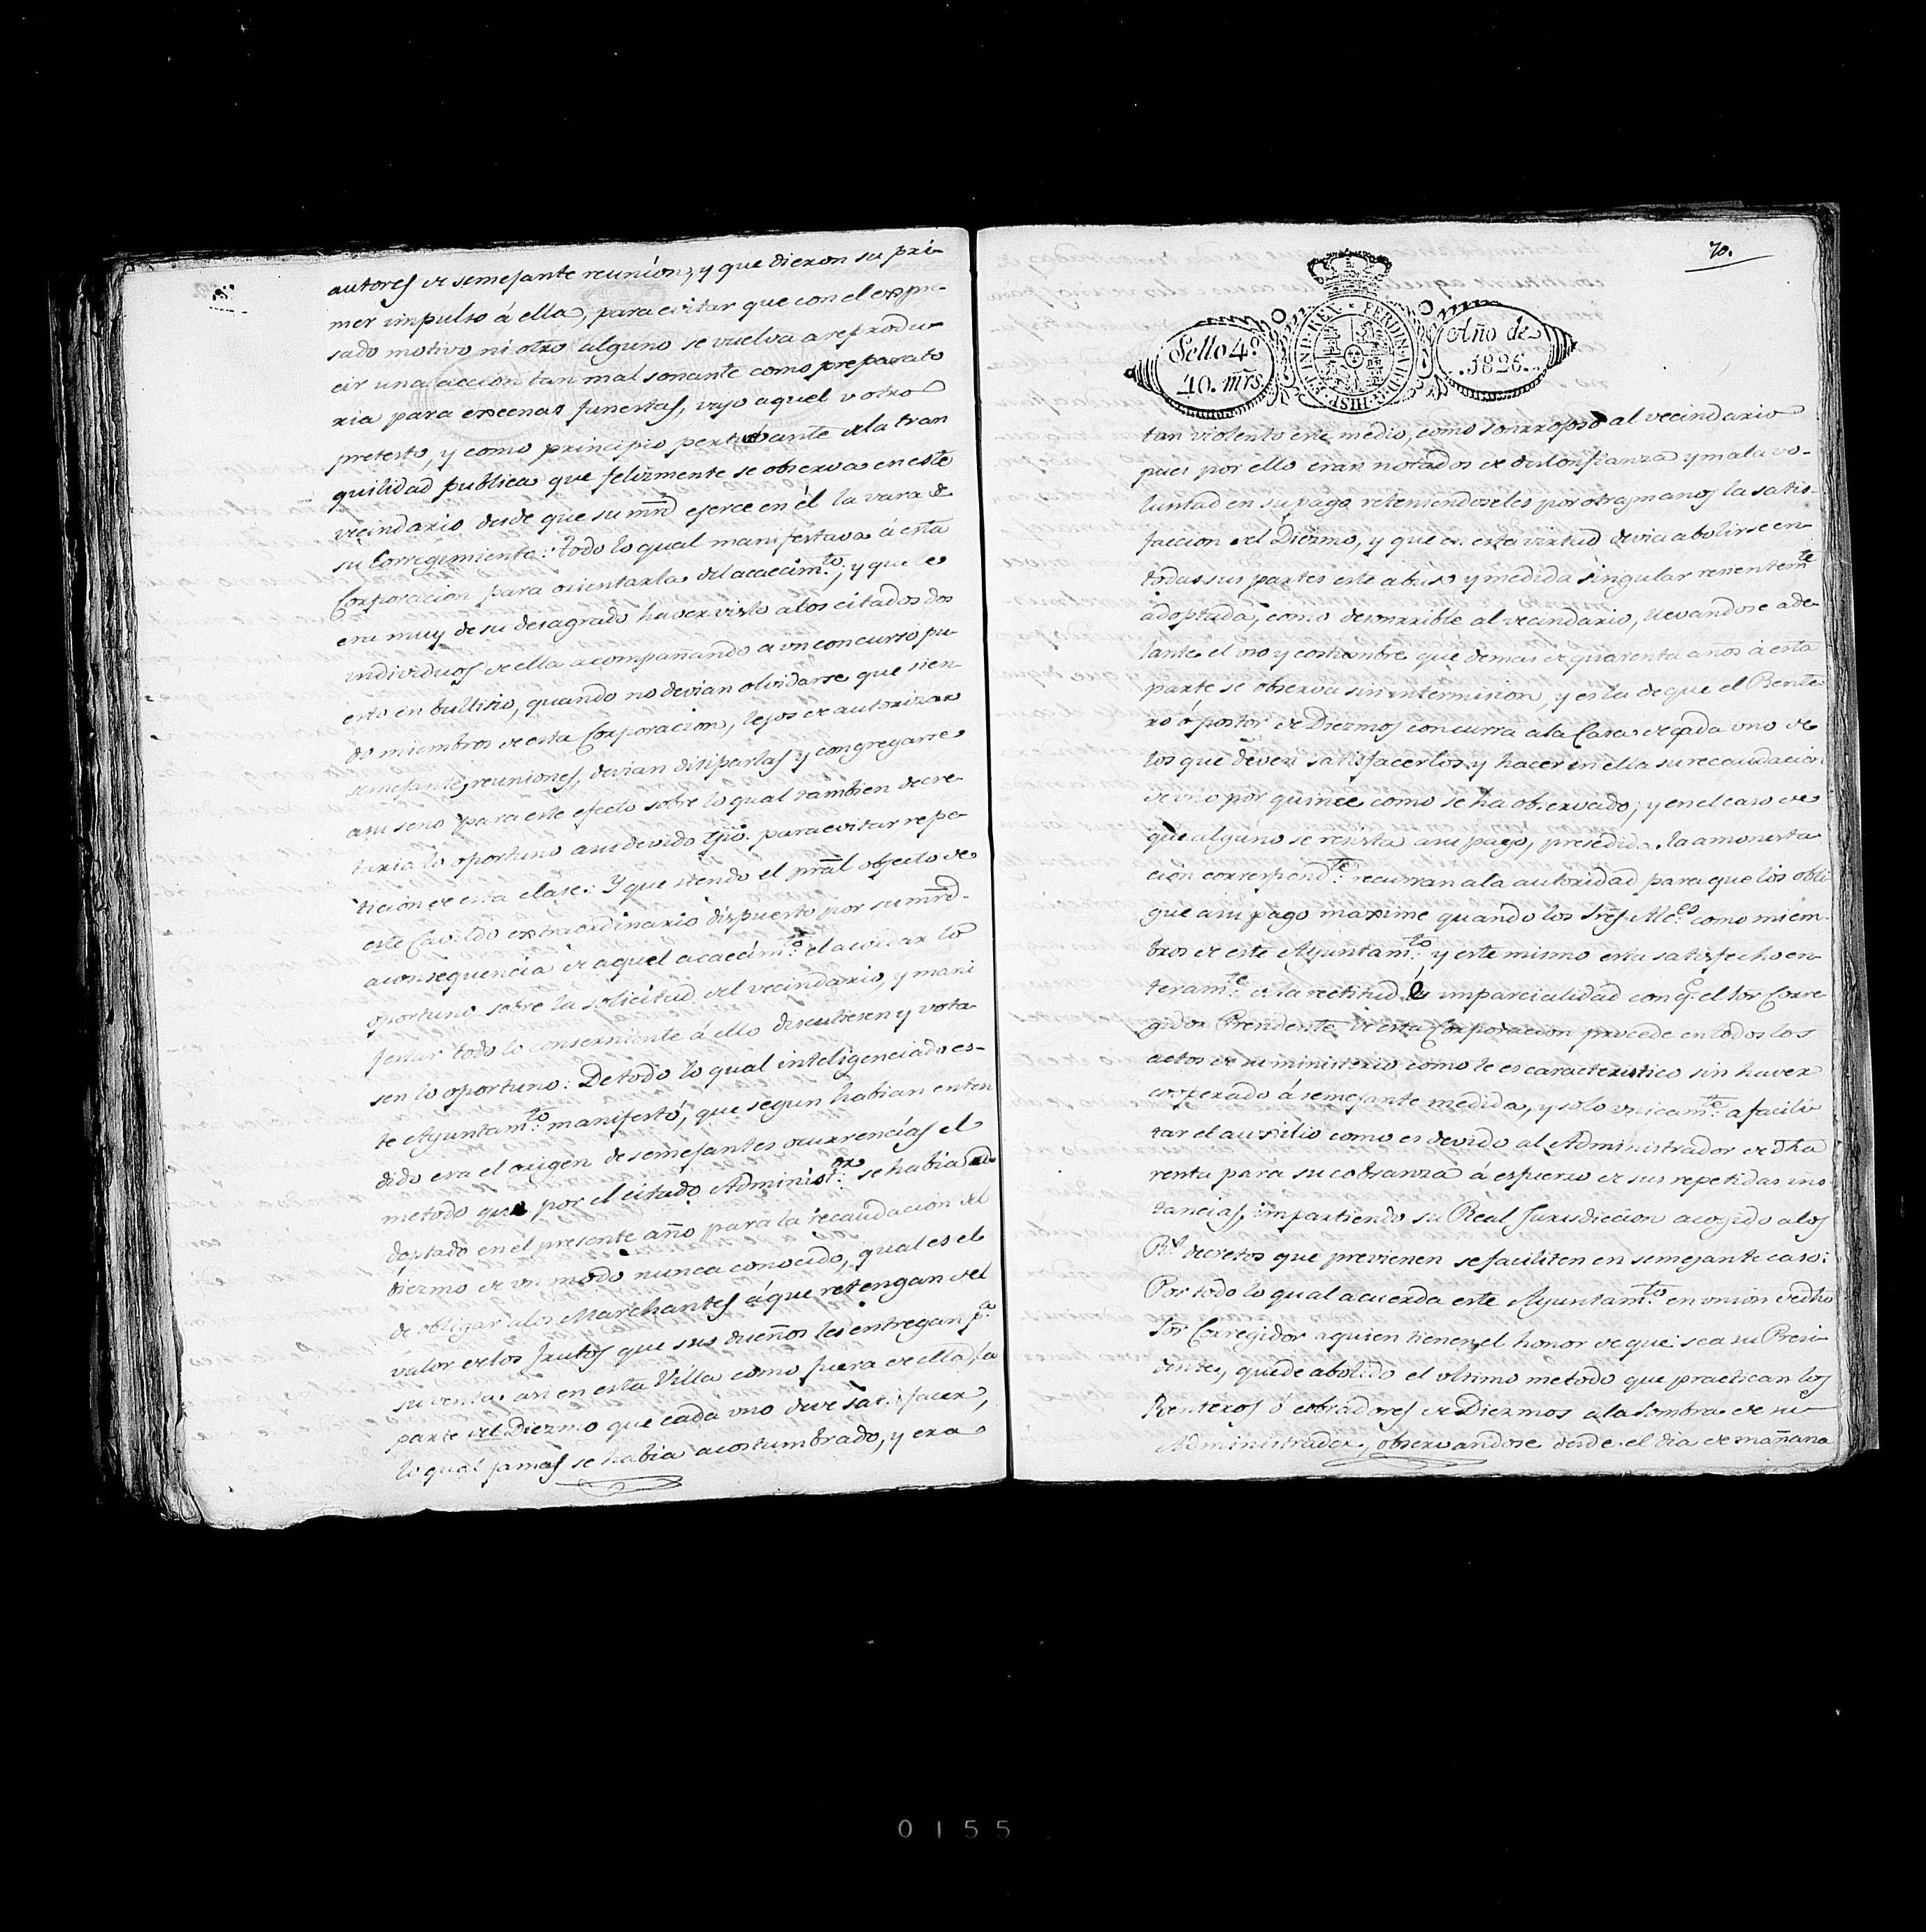 autores de semejante reunion, y que dieron su pri-
mer impulso á ella, para evitar que con el expre-
sado motivo ni otro alguno se vuelva a reprodu-
cir una accion tan mal sonante como preparato
ria para excenas funestas, vajo aquel u otro
pretesto, y como principio perturbante de la tran
quilidad publica que felizmente se observa en este
vecindario desde que su mrd ejerce en él la vara de
su Corregimiento: todo lo qual manifestava á esta
Corporacion para orientarla del acaecim.to; y que le
era muy de su desagrado haver visto a los citados dos
individuos de ella acompañando a un concurso pu-
esto en bullicio, quando no devian olvidarse que sien-
do miembros de esta Corporacion, lejos de autorizar
semejantes reuniones, devian disiparlas y congregarse
a su seno para este efecto sobre lo qual tambien decre-
taria lo oportuno a su devido tpo. para evitar repe-
ticion de esta clase: Y que siendo el pral objecto de
este Cavildo extraordinario dispuesto por su mrd.
a consequencia de aquel acaecim.to el acordar lo
oportuno sobre la solicitud del vecindario, y mani
festar todo lo conserniente á ello discutiesen y vota-
sen lo oportuno: De todo lo qual inteligenciado es-
te Ayuntam.to manifestó, que segun habian enten
dido era el origen de semejantes ocurrencias el
metodo que por el citado Administ.or se habia a-
doptado en el presente año para la recaudacion del
diezmo de un modo nunca conocido, qual es el
de obligar a los Marchantes á que retengan del
valor de los frutos que sus dueños les entregan p.a
su venta, asi en esta Villa como fuera de ella, la
parte del Diezmo que cada uno deve satisfacer,
lo qual jamas se habia acostumbrado, y era
70.
Sello 4.º
40. mrs.
FERDIN. VII. D. G. HISP. ET IND. REX
Año de
1826.
tan violento este medio, como sonrrojoso al vecindario
pues por ello eran notados de desconfianza y mala vo-
luntad en su pago reteniendoseles por otras manos la satis-
faccion del Diezmo, y que en esta virtud devia abolirse en
todas sus partes este abuso y medida singular resientem.te
adoptada, como desonrrible al vecindario, llevandose ade-
lante el uso y costumbre que demas de quarenta anos á esta
parte se observa sin intermision, y es la de que el Rente
ro ó postor de Diezmos concurra á la Casa de cada uno de
los que deven satisfacerlos y hacer en ella su recaudacion
de uno por quince como se ha observado; y en el caso de
que alguno se resista a su pago, presedida la amonesta
cion correspond.te recurran a la autoridad para que los obli
gue a su pago maxime quando los Sres. Alc.es como miem-
bros de este Ayuntam.to y este mismo esta satisfecho en-
teram.te de la rectitud é imparcialidad con q.e el Sor Corre-
gidor Presidente de esta Corporacion procede en todos los
actos de su ministerio como le es caracteristico sin haver
cooperado á semejante medida, y solo unicam.te a facili-
tar el ausilio como es devido al Administrador de dha
renta para su cobranza á esfuerzo de sus repetidas ins
tancias, impartiendo su Real Jurisdiccion acogido a los
R.s decretos que previenen se faciliten en semejante caso:
Por todo lo qual acuerda este Ayuntam.to en union de dho
Sor Corregidor a quien tienen el honor de que sea su Presi
dente, quede abolido el ultimo metodo que practican los
Renteros ó cobradores de Diezmos a la sombra de su
Administrador, observandose desde el dia de mañana
0155